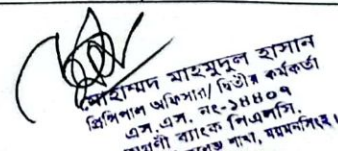 মোহাম্মদ মাহমুদুল হাসান
প্রিন্সিপাল অফিসার/ দ্বিতীয় কর্মকর্তা
এস.এস. নং-১৪৪০৭
অগ্রণী ব্যাংক পিএলসি.
শাখা, ময়মনসিংহ।